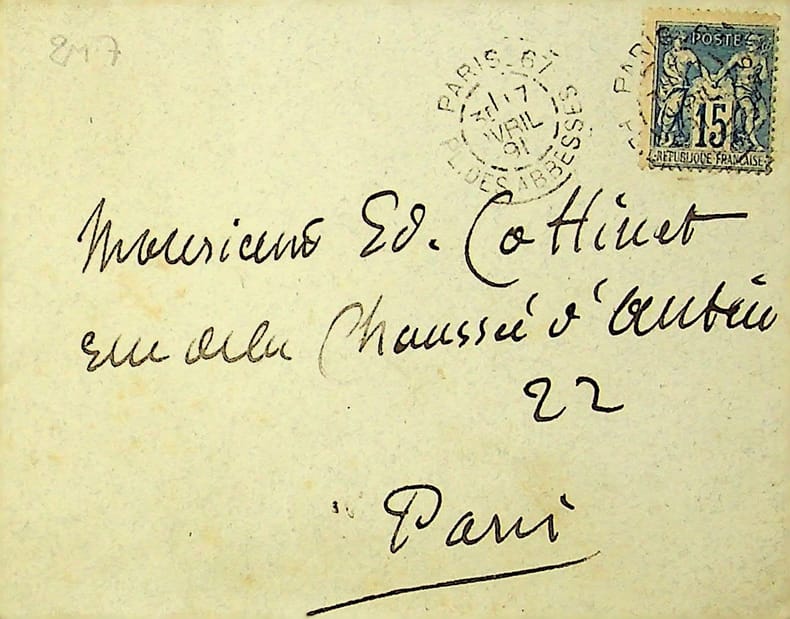 2M7
PARIS. 67
3E/17
AVRIL
91
PL. DES ABBESSES
PARIS
POSTES
15
REPUBLIQUE FRANCAISE
Monsieur Ed. Cottinet
rue de la Chaussée d'Antin
22
Paris